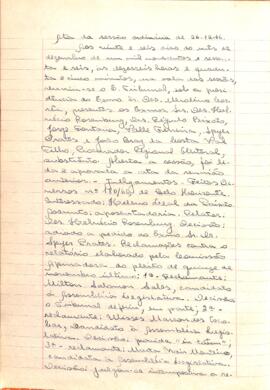 Ata da sessão ordinária de 26.12.66.
Aos vinte e seis dias do mês de
dezembro de um mil novecentos e sessen-
ta e seis, às dezesseis horas e quaren-
ta e cinco minutos, na sala das sessões,
reuniu-se o E. Tribunal, sob a pre-
sidência do Exmo. Sr. Des.
presentes os Exmos. Srs. Des. Hel-
vécio Rosenburg, Drs. Régulo Peixoto,
José Santana,
Prates e João
Filho, Procurador Regional Eleitoral
substituto. Aberta a sessão, foi li-
da e aprovada a ata da reunião
anterior. - Julgamentos. - Feitos Di-
versos nº 170/66, de Belo Horizonte.
Interessado: Heleno Leal da Paixão
Assunto: aposentadoria. Relator:
Des. Helvécio Rosenburg. Decisão:
adiado a pedido do Exmo. Sr. Dr.
Prates. Reclamações contra o
relatório elaborado pela Comissão
Apuradora do pleito de quinze de
novembro último: 1º - Reclamante:
Milton Salomon Sales, candidato
à Assembléia Legislativa. Decisão:
o Tribunal deferiu, em parte. 2º -
reclamante: Ulisses Marcondes Esco-
bar, candidato à Assembléia Legis-
lativa. Decisão: deferida "in totum".
3º - reclamante: Mário
candidato à Assembléia Legislativa.
Decisão: julgou-se incompetente o re-